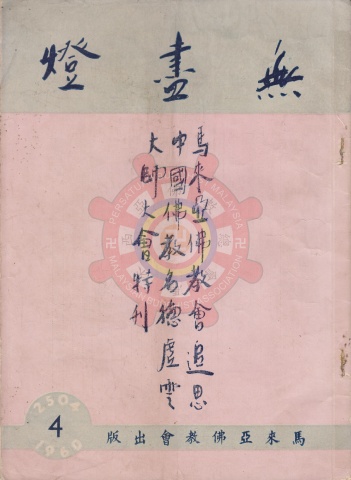 無盡燈
馬來亞佛教會追思
中國佛教名德虛雲
大師大會特刊
2504
1960
4
馬來亞佛教會出版